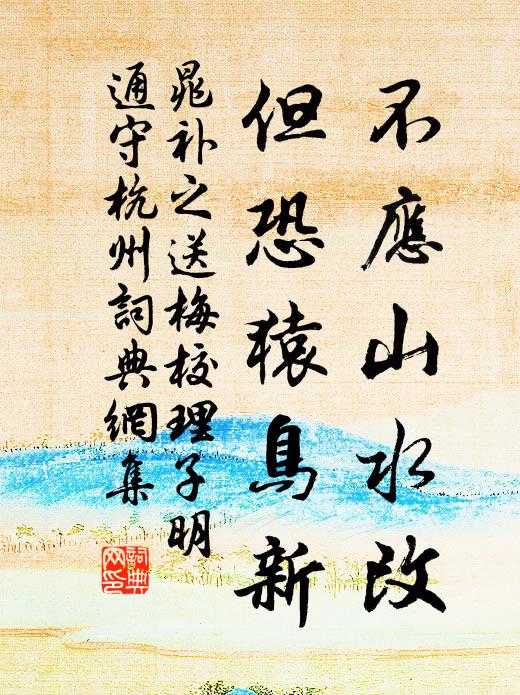 不應山水改
但恐猿鳥新
晁补之送梅校理子明
通守杭州詞典網集
詞典
网印